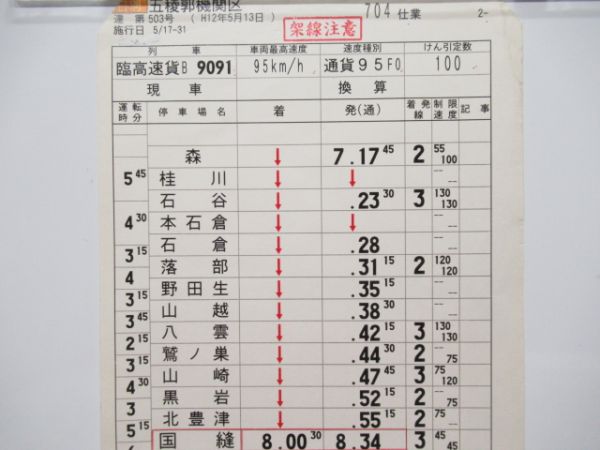 五稜郭機関区
達 第 503号 ( H12年5月13日 ) 704 仕業 2-
施行日 5/17-31 架線注意
列車 車両最高速度 速度種別 けん引定数
臨高速貨B 9091 95km/h 通貨95F0 100
現車 換算
運転時分 停車場名 着 発(通) 着発線 制限速度 記事
森 ↓ 7.17 45 2 55 100
5 45
桂川 ↓ ↓ -- --
石谷 ↓ .23 30 3 130 130
4 30
本石倉 ↓ ↓ -- --
石倉 ↓ .28 -- --
3 15
落部 ↓ .31 15 2 120 120
4
野田生 ↓ .35 15 -- --
3 15
山越 ↓ .38 30 -- --
3 45
八雲 ↓ .42 15 3 130 130
2 15
鷲ノ巣 ↓ .44 30 2 -- 75
3 15
山崎 ↓ .47 45 3 75 120
4 30
黒岩 ↓ .52 15 2 -- 75
3
北豊津 ↓ .55 15 2 -- 75
5 15
国縫 8.00 30 8.34 3 45 45